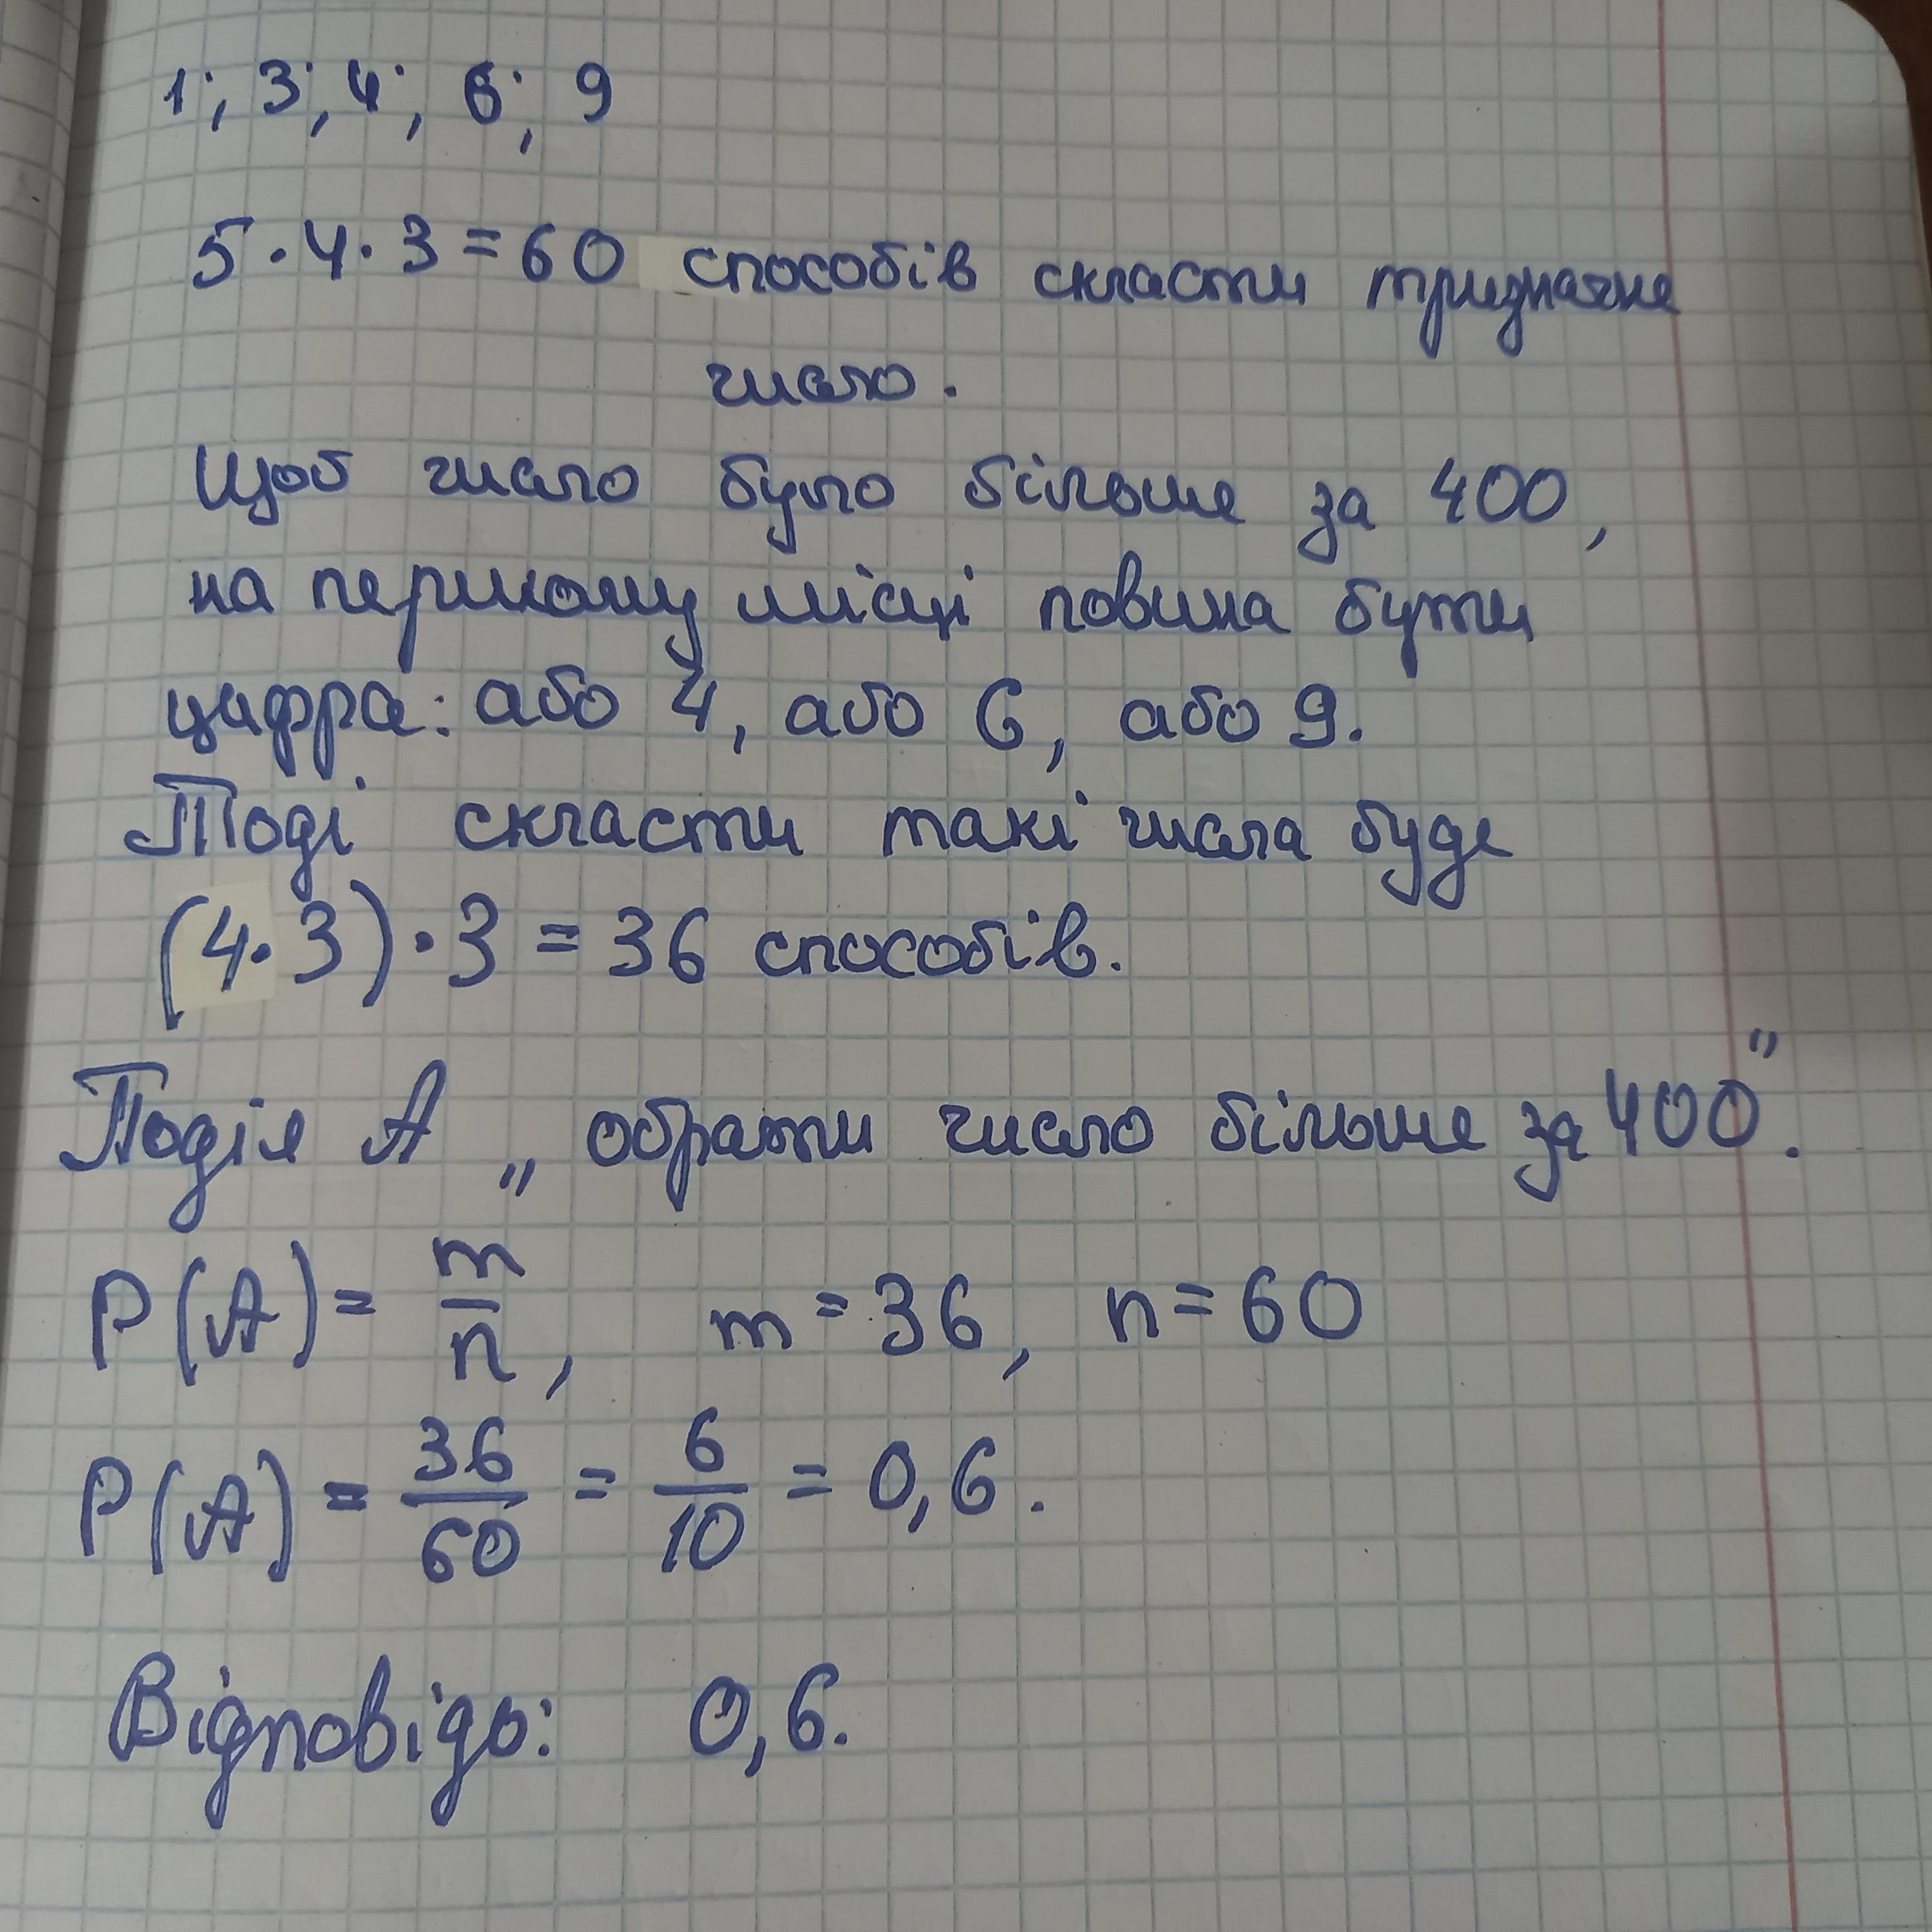 1; 3; 4; 6; 9
5 · 4 · 3 = 60 способів скласти трицначне
число.
Щоб число було більше за 400,
на першому місці повина бути
цифра: або 4, або 6, або 9.
Тоді скласти такі числа буде
(4 · 3) · 3 = 36 способів.
Подія А „ обрати число більше за 400".
P(A) = m/n, m = 36, n = 60
P(A) = 36/60 = 6/10 = 0,6.
Відповідь: 0,6.